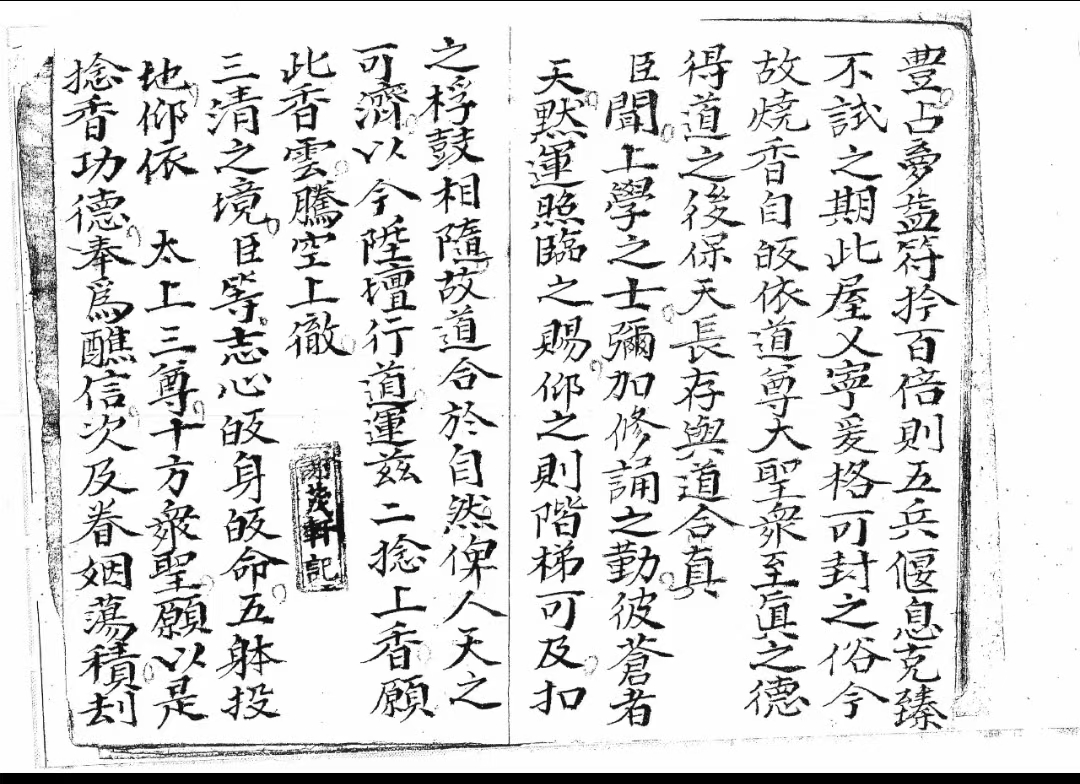 豊占夢益符扵百倍則五兵偃息克臻
不試之期此屋乂寧爰格可封之俗今
故燒香自皈依道尊大聖衆至眞之德
得道之後保天長存與道合真
臣聞上學之士彌加修誦之勤彼蒼者
天黙運照臨之賜仰之則階梯可及扣
之桴鼓相隨故道合於自然俾人天之
可濟以今陞壇行道運兹二捻上香願
此香雲騰空上徹
謝茂軒記
三清之境臣等志心皈身皈命五躰投
地仰依 太上三尊十方衆聖願以是
捻香功德奉爲醮信次及眷姻蕩積刦